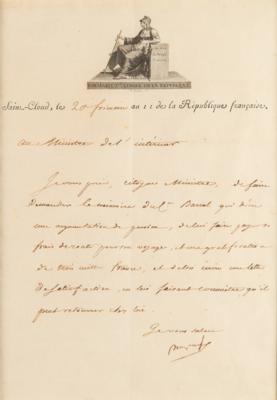 BONAPARTE, 1er CONSUL DE LA RÉPUBLIQUE.
Saint-Cloud, le 20 frimaire an 11 de la République française.
au Ministre de l'intérieur
Je vous prie, citoyen Ministre, de faire
demander la mineure du Cn Barral qui
une augmentation de pension, de lui faire payer
frais de route pour son voyage, et une gratification
de mille francs, et selon une lettre
de satisfaction, en lui faisant connaître qu'il
peut retourner chez lui.
Je vous salue